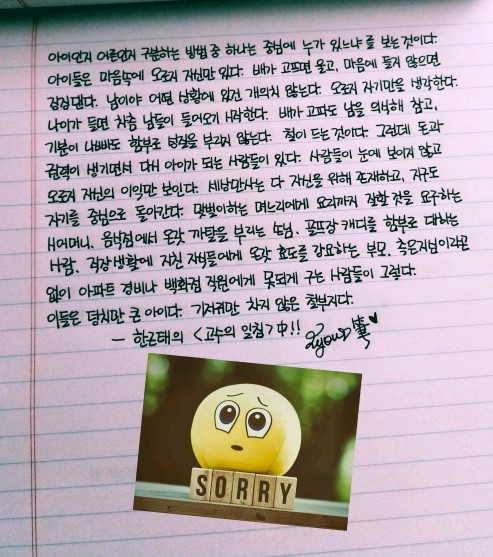 아이인지 어른인지 구분하는 방법 중 하나는 중심에 누가 있느냐를 보는것이다.
아이들은 마음속에 오로지 자신만 있다. 배가 고프면 울고, 마음에 들지 않으면
징징댄다. 남이야 어떤 상황에 있건 개의치 않는다. 오로지 자기만을 생각한다.
나이가 들면 차츰 남들이 들어오기 시작한다. 배가 고파도 남을 의식해 참고,
기분이 나빠도 함부로 성질을 부리지 않는다. 철이 드는것이다. 그런데 돈과
권력이 생기면서 다시 아이가 되는 사람들이 있다. 사람들이 눈에 보이지 않고
오로지 자신의 이익만 보인다. 세상만사는 다 자신을 위해 존재하고, 지구도
자기를 중심으로 돌아간다. 맞벌이하는 며느리에게 요리까지 잘할 것을 요구하는
시어머니, 음식점에서 온갖 까탈을 부리는 손님, 골프장 캐디를 함부로 대하는
사람, 직장생활에 지친 자식들에게 온갖 효도를 강요하는 부모, 측은지심이라곤
없이 아파트 경비나 백화점 직원에게 못되게 구는 사람들이 그렇다.
이들은 덩치만 큰 아이다. 기저귀만 차지 않은 철부지다.
— 한근태의 <고수의 일침> 中!!
SORRY